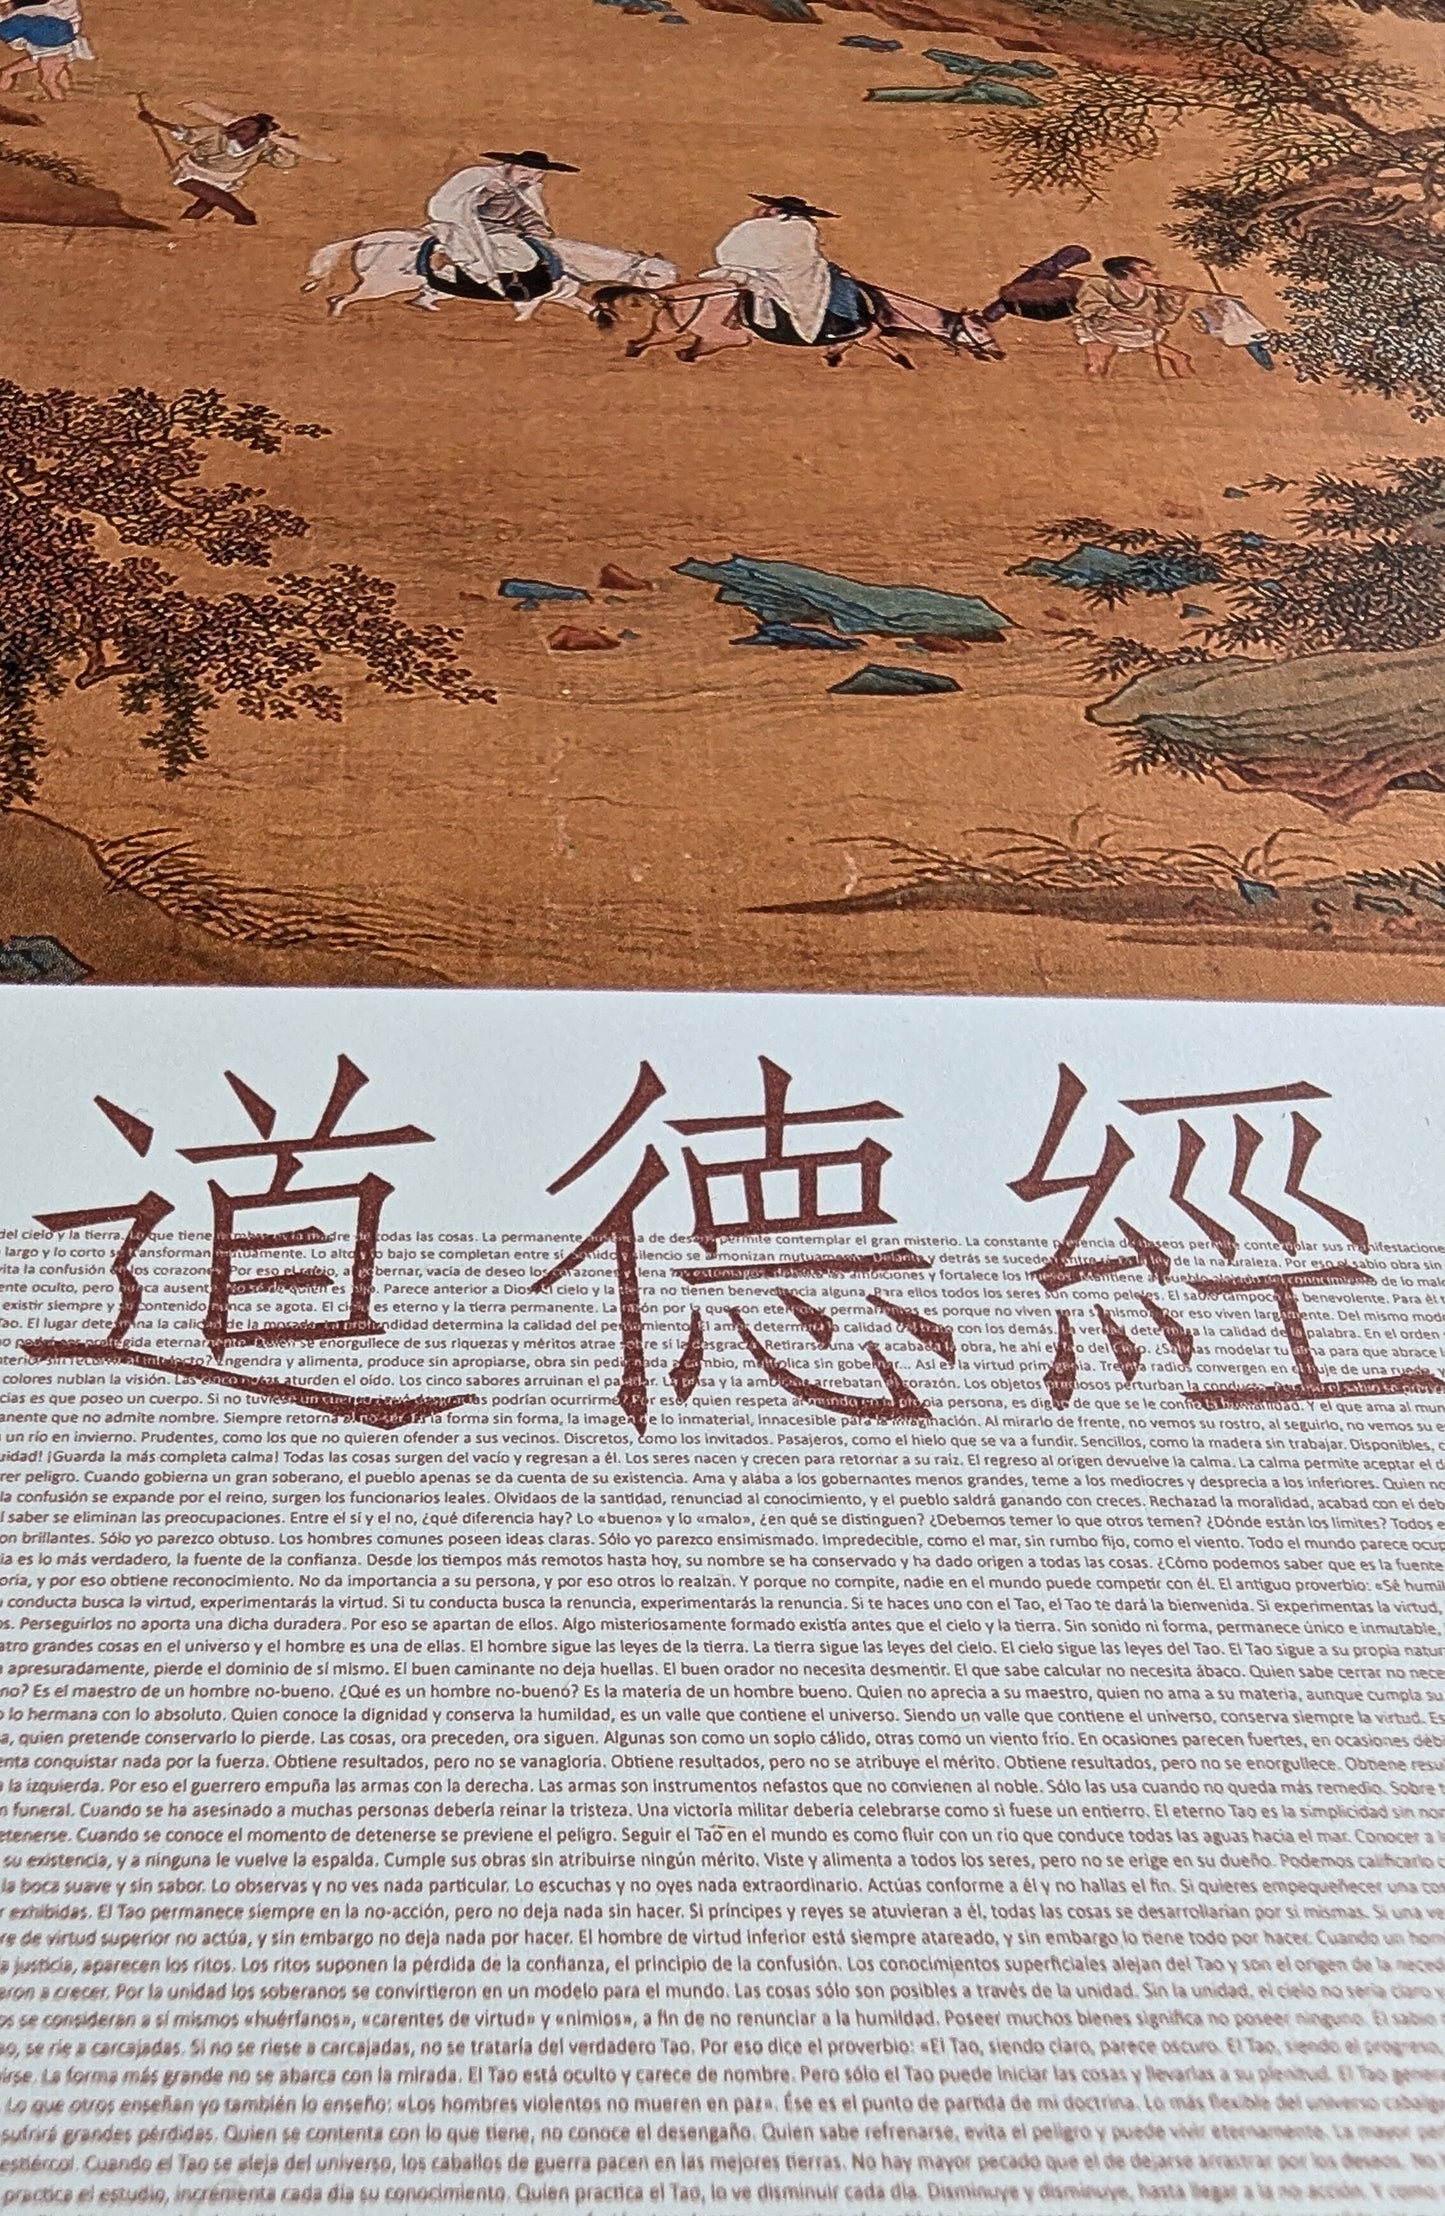 道德經
del cielo y la tierra. Lo que tiene nombre es la madre de todas las cosas. La permanente ausencia de deseos permite contemplar el gran misterio. La constante presencia de deseos permite contemplar sus manifestaciones
largo y lo corto se transforman mutuamente. Lo alto y lo bajo se completan entre sí. Sonido y silencio se armonizan mutuamente. Delante y detrás se suceden entre sí. Es la ley de la naturaleza. Por eso el sabio obra sin
vita la confusión de los corazones. Por eso el sabio, al gobernar, vacía de deseo los corazones y llena los estómagos, debilita las ambiciones y fortalece los huesos. Mantiene al pueblo alejado del conocimiento de lo malo
ente oculto, pero nunca ausente. No sé de quién es hijo. Parece anterior a Dios. El cielo y la tierra no tienen benevolencia alguna. Para ellos todos los seres son como peleles. El sabio tampoco es benevolente. Para él
existir siempre y su contenido nunca se agota. El cielo es eterno y la tierra permanente. La razón por la que son eternos y permanentes es porque no viven para sí mismos. Por eso viven largamente. Del mismo modo
Tao. El lugar determina la calidad de la morada. La profundidad determina la calidad del pensamiento. El amor determina la calidad del trato con los demás. La verdad determina la calidad de la palabra. En el orden
no podrá ser protegida eternamente. Quien se enorgullece de sus riquezas y méritos atrae sobre sí la desgracia. Retirarse una vez acabada la obra, he ahí el Tao del Cielo. ¿Sabrías modelar tu alma para que abrace
interior sin recurrir al intelecto? Engendra y alimenta, produce sin apropiarse, obra sin pedir nada a cambio, multiplica sin gobernar... Así es la virtud primordia. Treinta radios convergen en el buje de una rueda
colores nublan la visión. Las cinco notas aturden el oído. Los cinco sabores arruinan el paladar. La prisa y la ambición arrebatan el corazón. Los objetos preciosos perturban la conducta. Por eso el sabio se
cias es que poseo un cuerpo. Si no tuviese un cuerpo, ¿qué desgracias podrían ocurrirme? Por eso, quien respeta al mundo en la propia persona, es digno de que se le confíe la humanidad. Y el que ama al mun
anente que no admite nombre. Siempre retorna al no-ser. Es la forma sin forma, la imagen de lo inmaterial, Innacesible para la imaginación. Al mirarlo de frente, no vemos su rostro, al seguirlo, no vemos su e
un río en invierno. Prudentes, como los que no quieren ofender a sus vecinos. Discretos, como los invitados. Pasajeros, como el hielo que se va a fundir. Sencillos, como la madera sin trabajar. Disponibles, c
uidad! ¡Guarda la más completa calma! Todas las cosas surgen del vacío y regresan a él. Los seres nacen y crecen para retornar a su raíz. El regreso al origen devuelve la calma. La calma permite aceptar el d
rer peligro. Cuando gobierna un gran soberano, el pueblo apenas se da cuenta de su existencia. Ama y alaba a los gobernantes menos grandes, teme a los mediocres y desprecia a los inferiores. Quien no
la confusión se expande por el reino, surgen los funcionarios leales. Olvidaos de la santidad, renunciad al conocimiento, y el pueblo saldrá ganando con creces. Rechazad la moralidad, acabad con el deb
l saber se eliminan las preocupaciones. Entre el sí y el no, ¿qué diferencia hay? Lo «bueno» y lo «malo», ¿en qué se distinguen? ¿Debemos temer lo que otros temen? ¿Dónde están los límites? Todos e
on brillantes. Sólo yo parezco obtuso. Los hombres comunes poseen ideas claras. Sólo yo parezco ensimismado. Impredecible, como el mar, sin rumbo fijo, como el viento. Todo el mundo parece ocup
ia es lo más verdadero, la fuente de la confianza. Desde los tiempos más remotos hasta hoy, su nombre se ha conservado y ha dado origen a todas las cosas. ¿Cómo podemos saber que es la fuente
oria, y por eso obtiene reconocimiento. No da importancia a su persona, y por eso otros lo realzan. Y porque no compite, nadie en el mundo puede competir con él. El antiguo proverbio: «Sé humil
u conducta busca la virtud, experimentarás la virtud. Si tu conducta busca la renuncia, experimentarás la renuncia. Si te haces uno con el Tao, el Tao te dará la bienvenida. Si experimentas la virtud,
os. Perseguirlos no aporta una dicha duradera. Por eso se apartan de ellos. Algo misteriosamente formado existía antes que el cielo y la tierra. Sin sonido ni forma, permanece único e inmutable,
atro grandes cosas en el universo y el hombre es una de ellas. El hombre sigue las leyes de la tierra. La tierra sigue las leyes del cielo. El cielo sigue las leyes del Tao. El Tao sigue a su propia natur
a apresuradamente, pierde el dominio de sí mismo. El buen caminante no deja huellas. El buen orador no necesita desmentir. El que sabe calcular no necesita ábaco. Quien sabe cerrar no nece
no? Es el maestro de un hombre no-bueno. ¿Qué es un hombre no-bueno? Es la materia de un hombre bueno. Quien no aprecia a su maestro, quien no ama a su materia, aunque cumpla su
o lo hermana con lo absoluto. Quien conoce la dignidad y conserva la humildad, es un valle que contiene el universo. Siendo un valle que contiene el universo, conserva siempre la virtud. Es
a, quien pretende conservarlo lo pierde. Las cosas, ora preceden, ora siguen. Algunas son como un soplo cálido, otras como un viento frío. En ocasiones parecen fuertes, en ocasiones débi
enta conquistar nada por la fuerza. Obtiene resultados, pero no se vanagloria. Obtiene resultados, pero no se atribuye el mérito. Obtiene resultados, pero no se enorgullece. Obtiene resu
a la izquierda. Por eso el guerrero empuña las armas con la derecha. Las armas son instrumentos nefastos que no convienen al noble. Sólo las usa cuando no queda más remedio. Sobre
n funeral. Cuando se ha asesinado a muchas personas debería reinar la tristeza. Una victoria militar debería celebrarse como si fuese un entierro. El eterno Tao es la simplicidad sin nom
etenerse. Cuando se conoce el momento de detenerse se previene el peligro. Seguir el Tao en el mundo es como fluir con un río que conduce todas las aguas hacia el mar. Conocer a
su existencia, y a ninguna le vuelve la espalda. Cumple sus obras sin atribuirse ningún mérito. Viste y alimenta a todos los seres, pero no se erige en su dueño. Podemos calificarlo
la boca suave y sin sabor. Lo observas y no ves nada particular. Lo escuchas y no oyes nada extraordinario. Actúas conforme a él y no hallas el fin. Si quieres empequeñecer una co
r exhibidas. El Tao permanece siempre en la no-acción, pero no deja nada sin hacer. Si príncipes y reyes se atuvieran a él, todas las cosas se desarrollarían por sí mismas. Si una ve
re de virtud superior no actúa, y sin embargo no deja nada por hacer. El hombre de virtud inferior está siempre atareado, y sin embargo lo tiene todo por hacer. Cuando un hom
a justicia, aparecen los ritos. Los ritos suponen la pérdida de la confianza, el principio de la confusión. Los conocimientos superficiales alejan del Tao y son el origen de la neced
eron a crecer. Por la unidad los soberanos se convirtieron en un modelo para el mundo. Las cosas sólo son posibles a través de la unidad. Sin la unidad, el cielo no sería claro y
os se consideran a sí mismos «huérfanos», «carentes de virtud» y «nimios», a fin de no renunciar a la humildad. Poseer muchos bienes significa no poseer ninguno. El sabio
ao, se ríe a carcajadas. Si no se riese a carcajadas, no se trataría del verdadero Tao. Por eso dice el proverbio: «El Tao, siendo claro, parece oscuro. El Tao, siendo el progreso,
irse. La forma más grande no se abarca con la mirada. El Tao está oculto y carece de nombre. Pero sólo el Tao puede iniciar las cosas y llevarlas a su plenitud. El Tao genera
Lo que otros enseñan yo también lo enseño: «Los hombres violentos no mueren en paz». Ése es el punto de partida de mi doctrina. Lo más flexible del universo cabalga
sufrirá grandes pérdidas. Quien se contenta con lo que tiene, no conoce el desengaño. Quien sabe refrenarse, evita el peligro y puede vivir eternamente. La mayor per
estiércol. Cuando el Tao se aleja del universo, los caballos de guerra pacen en las mejores tierras. No hay mayor pecado que el de dejarse arrastrar por los deseos. No
practica el estudio, incrementa cada día su conocimiento. Quien practica el Tao, lo ve disminuir cada día. Disminuye y disminuye, hasta llegar a la no-acción. Y como